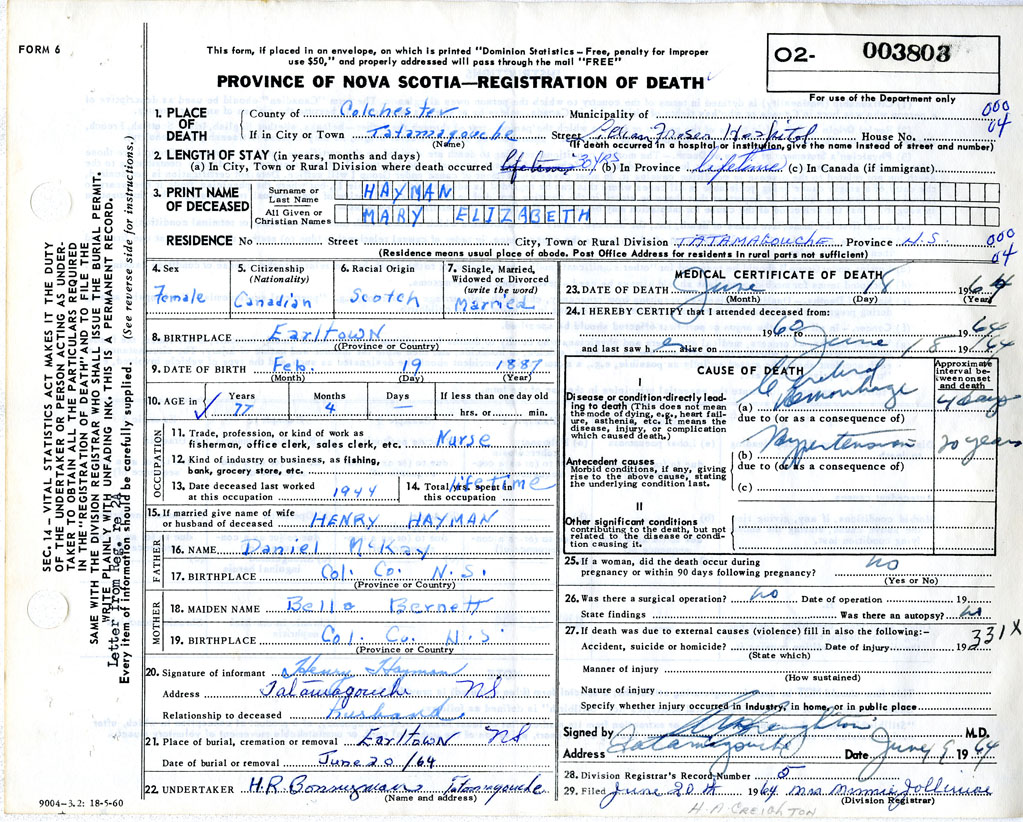 FORM 6
This form, if placed in an envelope, on which is printed "Dominion Statistics – Free, penalty for improper
use $50," and properly addressed will pass through the mail "FREE"
O2- 003803
For use of the Department only
PROVINCE OF NOVA SCOTIA—REGISTRATION OF DEATH
000
04
1. PLACE OF DEATH
County of Colchester Municipality of
If in City or Town Tatamagouche Street Fraser Hospital House No.
(Name) (If death occurred in a hospital or institution, give the name instead of street and number)
2. LENGTH OF STAY (in years, months and days)
(a) In City, Town or Rural Division where death occurred lifetime 30 yrs (b) In Province lifetime (c) In Canada (if immigrant)
3. PRINT NAME OF DECEASED
Surname or Last Name HAYMAN
All Given or Christian Names MARY ELIZABETH
RESIDENCE No Street City, Town or Rural Division TATAMAGOUCHE Province N.S.
000
04
(Residence means usual place of abode. Post Office Address for residents in rural parts not sufficient)
4. Sex Female
5. Citizenship (Nationality) Canadian
6. Racial Origin Scotch
7. Single, Married, Widowed or Divorced (write the word) Married
8. BIRTHPLACE Earltown
(Province or Country)
9. DATE OF BIRTH Feb. 19 1887
(Month) (Day) (Year)
10. AGE in Years 77 Months 4 Days – If less than one day old hrs. or min.
OCCUPATION
11. Trade, profession, or kind of work as
fisherman, office clerk, sales clerk, etc. Nurse
12. Kind of industry or business, as fishing,
bank, grocery store, etc.
13. Date deceased last worked
at this occupation 1944
14. Total yrs. spent in
this occupation lifetime
15. If married give name of wife
or husband of deceased HENRY HAYMAN
FATHER
16. NAME Daniel McKay
17. BIRTHPLACE Col. Co. N.S.
(Province or Country)
MOTHER
18. MAIDEN NAME Bella Bernett
19. BIRTHPLACE Col. Co. N.S.
(Province or Country)
20. Signature of informant Henry Hayman
Address Tatamagouche NS
Relationship to deceased husband
21. Place of burial, cremation or removal Earltown NS
Date of burial or removal June 20/64
22. UNDERTAKER H.R. Tatamagouche
(Name and address)
MEDICAL CERTIFICATE OF DEATH
23. DATE OF DEATH June 18 1964
(Month) (Day) (Year)
24. I HEREBY CERTIFY that I attended deceased from:
1960 to June 1964
and last saw h e alive on 18 1964
CAUSE OF DEATH
Approximate interval between onset and death
I
Disease or condition directly leading
to death (This does not mean
the mode of dying, e.g., heart failure,
asthenia, etc. It means the
disease, injury, or complication
which caused death.)
(a) Cerebral Hemorrhage 4 days
due to (or as a consequence of)
(b) Hypertension 20 years
due to (or as a consequence of)
(c)
Antecedent causes
Morbid conditions, if any, giving
rise to the above cause, stating
the underlying condition last.
II
Other significant conditions
contributing to the death, but not
related to the disease or condition
causing it.
25. If a woman, did the death occur during
pregnancy or within 90 days following pregnancy? no
(Yes or No)
26. Was there a surgical operation? no Date of operation 19
State findings Was there an autopsy? no
27. If death was due to external causes (violence) fill in also the following:–
331X
Accident, suicide or homicide? Date of injury 19
(State which)
Manner of injury
(How sustained)
Nature of injury
Specify whether injury occurred in Industry, in home, or in public place
Signed by Creighton M.D.
Address Tatamagouche Date June 1964
28. Division Registrar's Record Number 5
29. Filed June 20th 1964 Mrs Minnie
(Division Registrar)
H.A. CREIGHTON
SEC. 14 – VITAL STATISTICS ACT MAKES IT THE DUTY
OF THE UNDERTAKER OR PERSON ACTING AS UNDERTAKER
TO OBTAIN ALL THE PARTICULARS REQUIRED
IN THE "REGISTRATION OF DEATH" AND TO FILE THE
SAME WITH THE DIVISION REGISTRAR WHO SHALL ISSUE THE BURIAL PERMIT.
WRITE PLAINLY WITH UNFADING INK. THIS IS A PERMANENT RECORD.
Letter from Reg. re 2a
Every item of information should be carefully supplied. (See reverse side for instructions.)
9004–3.2: 18-5-60